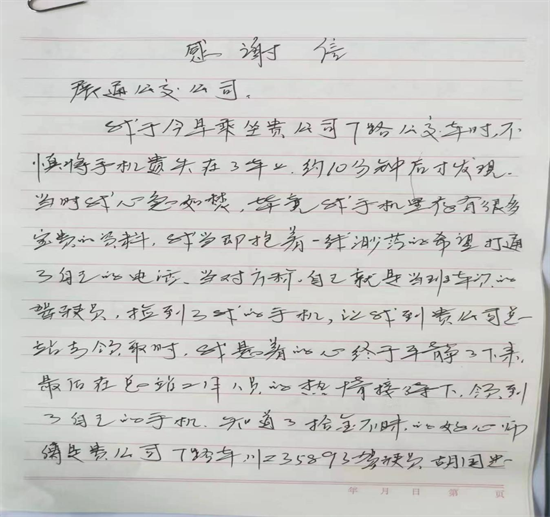 感谢信
辰通公交公司:
我于今早乘坐贵公司7路公交车时,不
慎将手机遗失在了车上,约10分钟后才发现.
当时我心急如焚,毕竟我手机里存有很多
宝贵的资料,我当即抱着一线渺茫的希望打通
了自己的电话,当对方称,自己就是当班车次的
驾驶员,捡到了我的手机,让我到贵公司总
站去领取时,我悬着的心终于平静了下来,
最后在总站工作人员的热情接待下,领到
了自己的手机.知道了拾金不昧的好心师
傅是贵公司7路车川Z35893驾驶员胡国
年 月 日 第 页